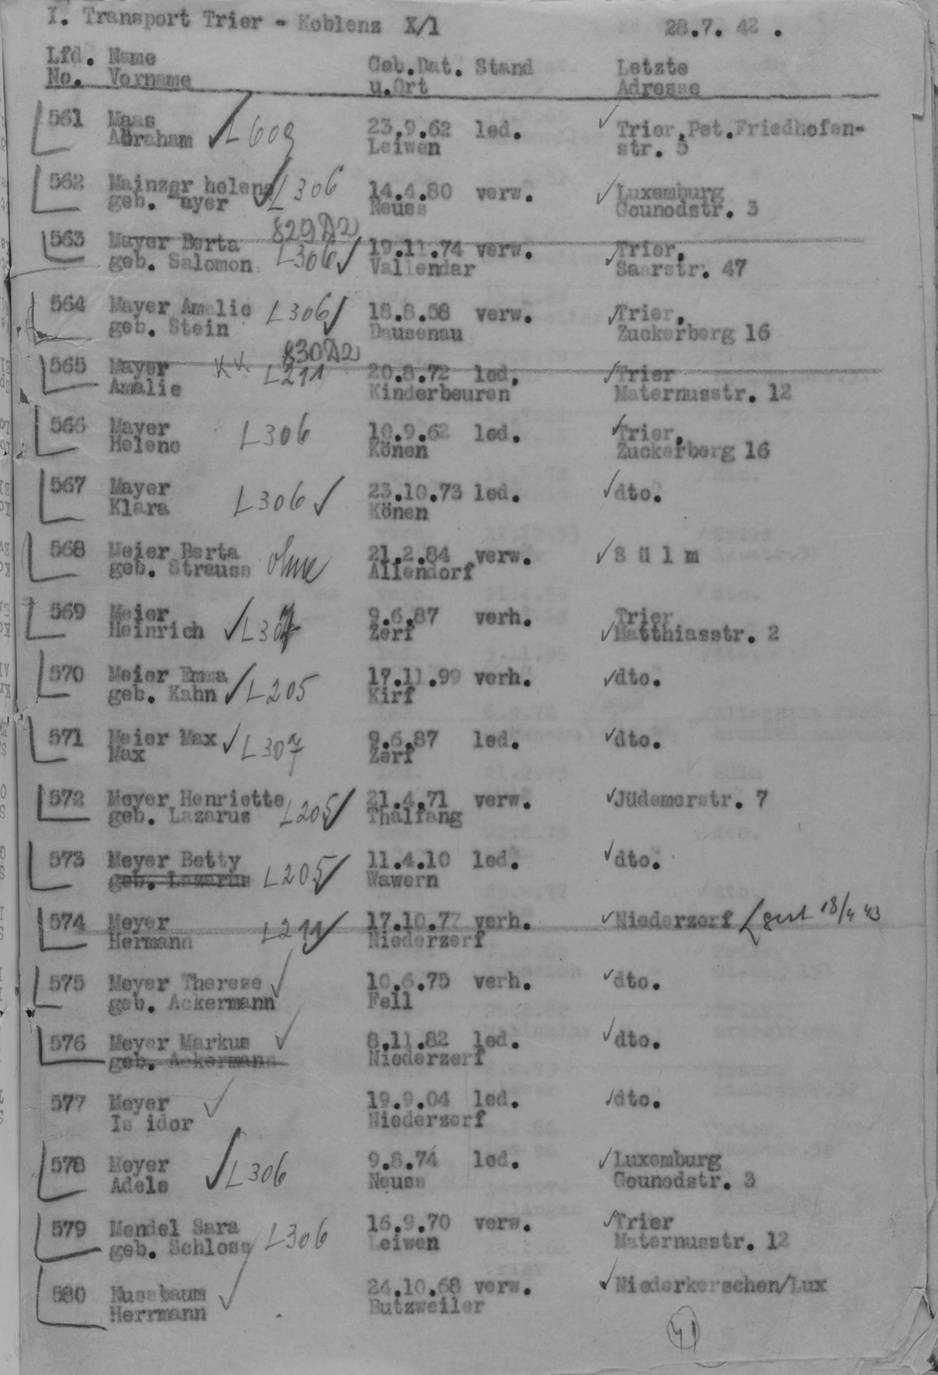 I. Transport Trier - Koblenz X/1 28.7. 42 .
Lfd. Name Geb.Dat. Stand Letzte
No. Vorname u.Ort Adresse
561 Maas 23.9.62 led. Trier,Pet.Friedhofen-
Abraham L609 Leiwen str. 5
562 Mainzer helene L306 14.4.80 verw. Luxemburg
geb. mayer Neuss Gounodstr. 3
829 A2
563 Mayer Berta 19.11.74 verw. Trier,
geb. Salomon L306 Vallendar Saarstr. 47
564 Mayer Amalie L306 18.8.58 verw. Trier,
geb. Stein Dausenau Zuckerberg 16
830 A2
565 Mayer L211 20.8.72 led. Trier
Amalie Kinderbeuren Maternusstr. 12
566 Mayer L306 10.9.62 led. Trier,
Helene Könen Zuckerberg 16
567 Mayer L306 23.10.73 led. dto.
Klara Könen
568 Meier Berta ohne 21.2.84 verw. S ü l m
geb. Strauss Allendorf
569 Meier 9.6.87 verh. Trier
Heinrich L307 Zerf Matthiasstr. 2
570 Meier Emma 17.11.99 verh. dto.
geb. Kahn L205 Kirf
571 Meier Max L307 9.6.87 led. dto.
Max Zerf
572 Meyer Henriette 21.4.71 verw. Jüdemerstr. 7
geb. Lazarus L205 Thalfang
573 Meyer Betty 11.4.10 led. dto.
geb. Lazarus L205 Wawern
574 Meyer 17.10.77 verh. Niederzerf gest 18/4 43
Hermann L211 Niederzerf
575 Meyer Therese 10.6.75 verh. dto.
geb. Ackermann Fell
576 Meyer Markus 8.11.82 led. dto.
geb. Ackermann Niederzerf
577 Meyer 19.9.04 led. dto.
Is idor Niederzerf
578 Meyer 9.8.74 led. Luxemburg
Adele L306 Neuss Gounodstr. 3
579 Mendel Sara 16.9.70 verw. Trier
geb. Schloss L306 Leiwen Maternusstr. 12
580 Nussbaum 24.10.68 verw. Niederkerschen/Lux
Herrmann Butzweiler
41